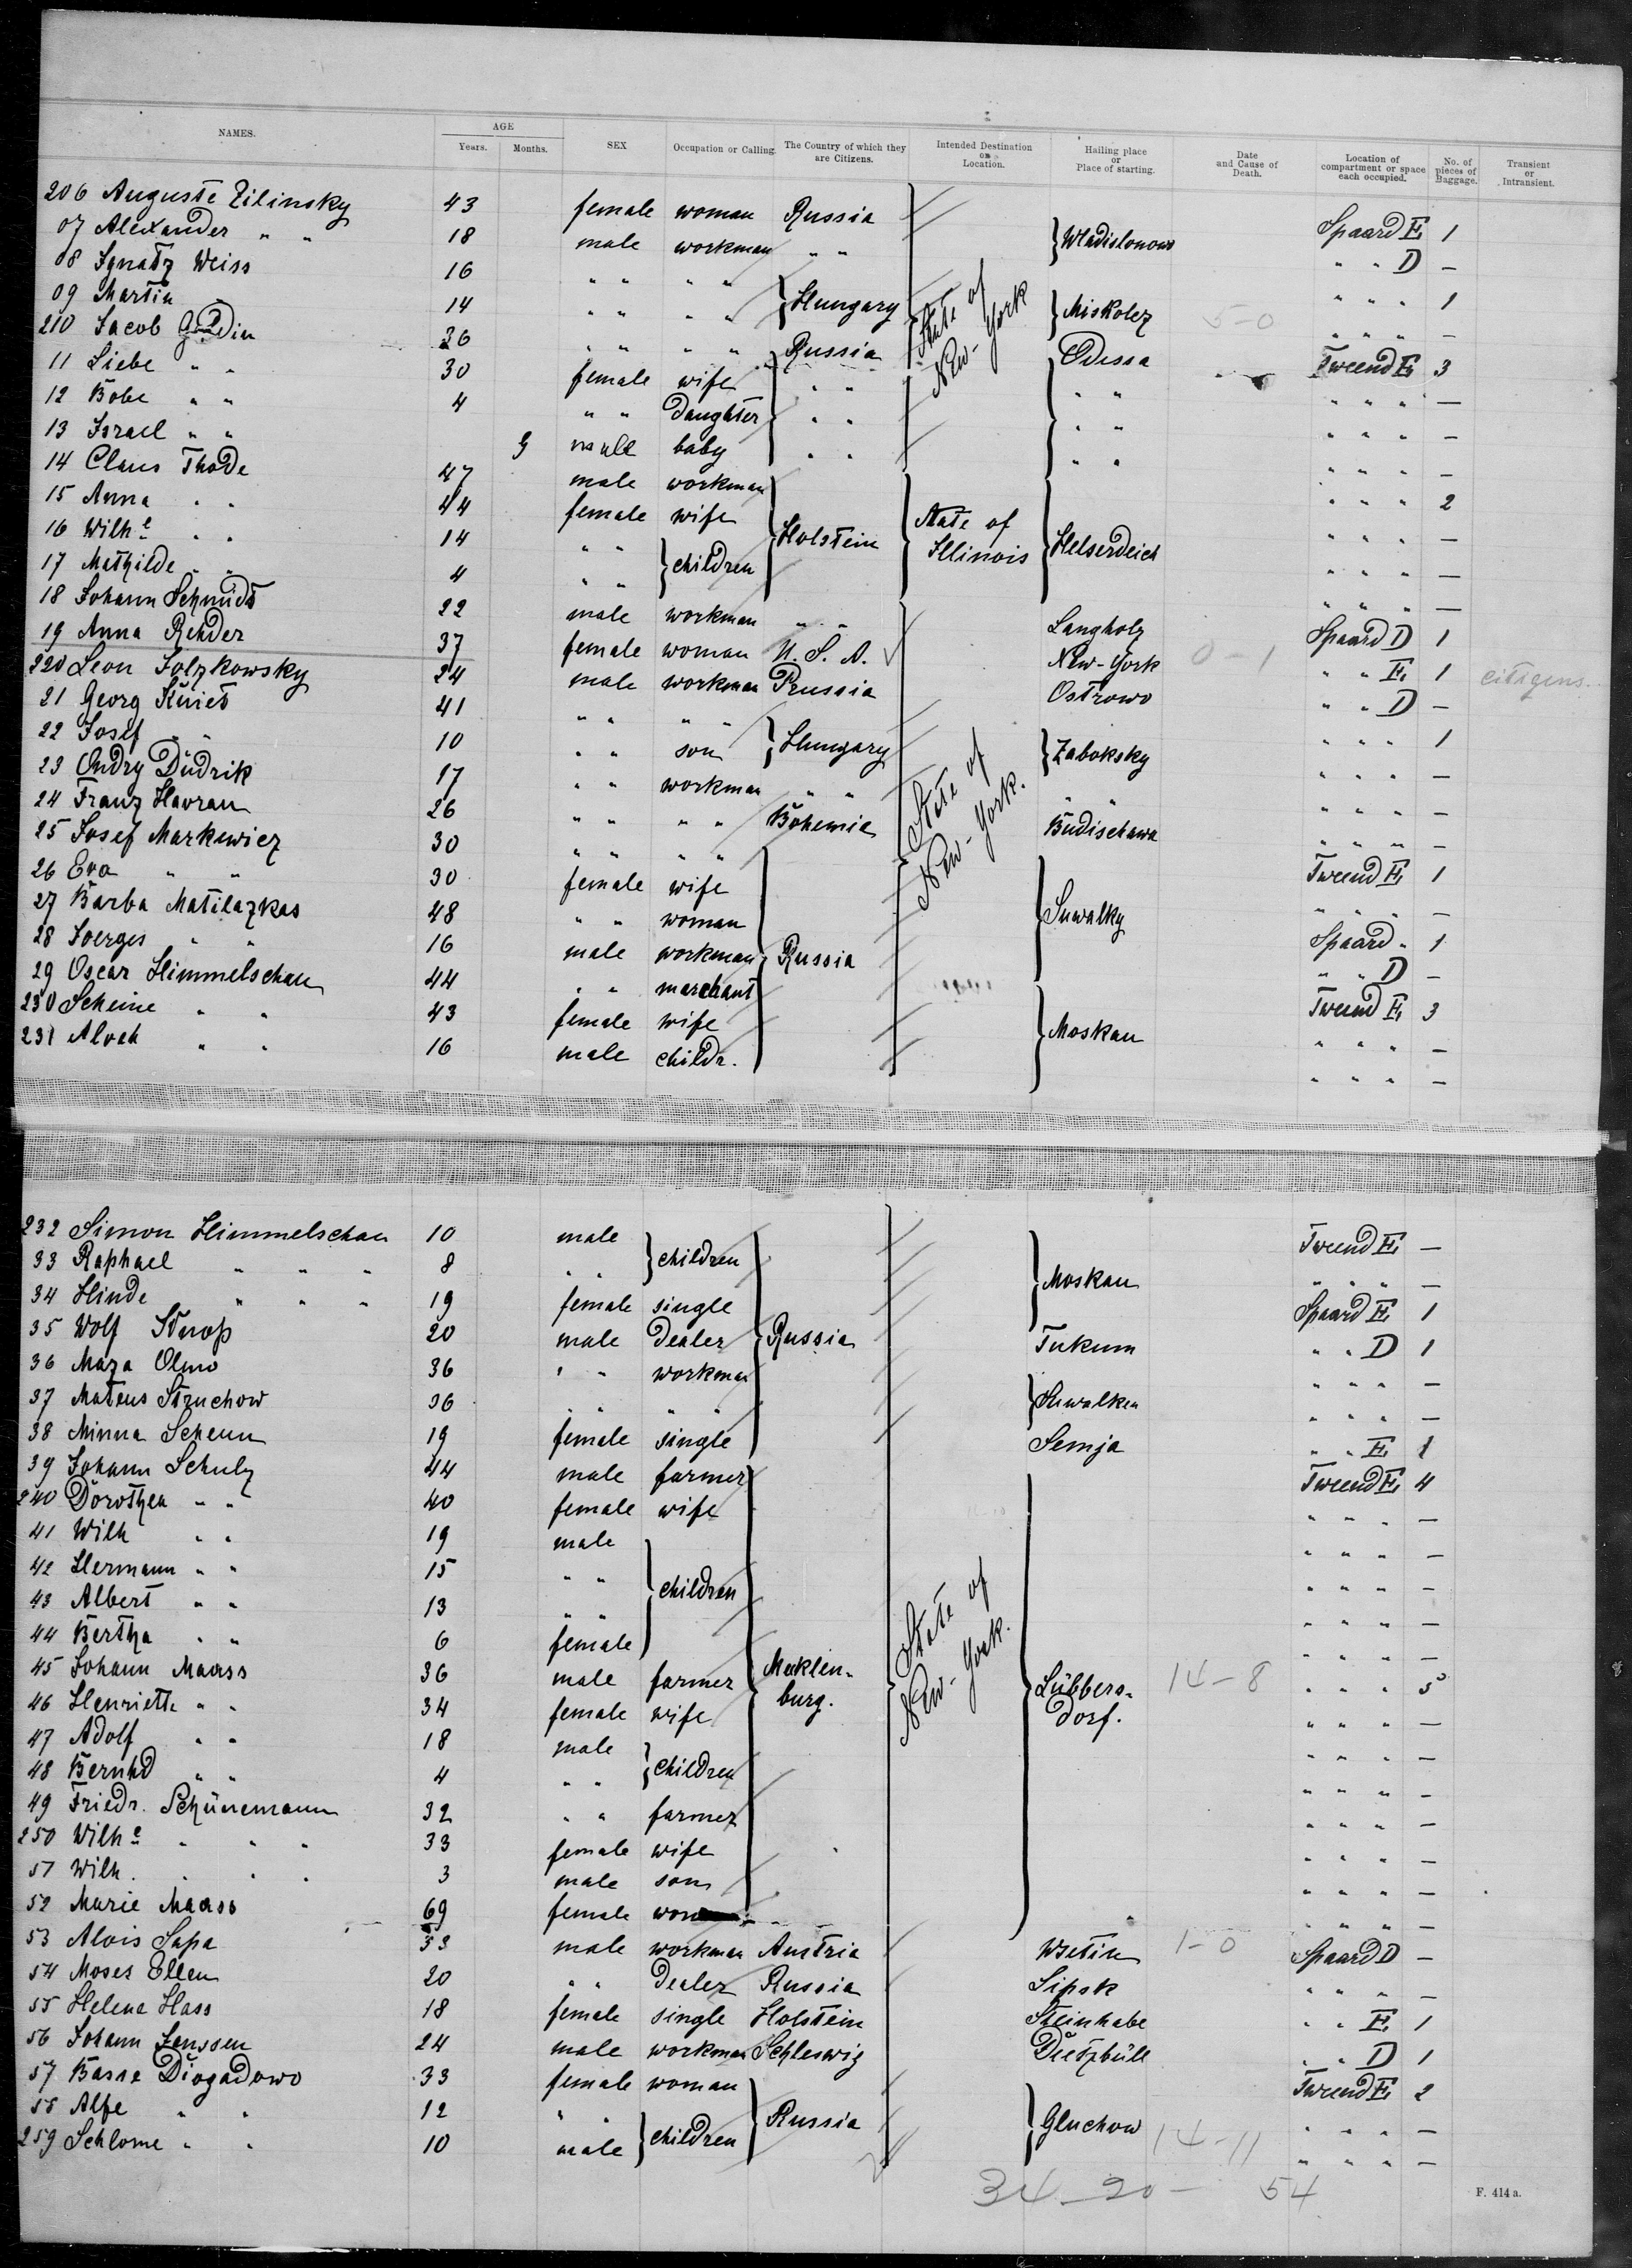 NAMES. AGE Years. Months. SEX Occupation or Calling. The Country of which they are Citizens. Intended Destination or Location. Hailing place or Place of starting. Date and Cause of Death. Location of compartment or space each occupied. No. of pieces of Baggage. Transient or Intransient.
206 Auguste Zilinsky 43 female woman Russia Wladislonowo Spaard E 1
07 Alexander " " 18 male workman " " " " D —
08 Ignatz Weiss 16 " " " " Hungary State of New-York Miskolcz " " " 1
09 Martin 14 " " " " 5-0 " " " —
210 Jacob Gordin 36 " " " " Russia Odessa Tweend E 3
11 Liebe " " 30 female wife " " " " " " " —
12 Bobe " " 4 " " daughter " " " " " " " —
13 Israel " " 9 male baby " " " " " " " —
14 Claus Thode 47 male workman Holstein State of Illinois Helserdeich " " " 2
15 Anna " " 44 female wife " " " —
16 Wilhe " " 14 " " children " " " —
17 Mathilde " " 4 " " " " " —
18 Johann Schmidt 22 male workman " " Langholz Spaard D 1
19 Anna Rehder 37 female woman U. S. A. New-York 0-1 " " E 1 citizens
220 Leon Jolzkowsky 24 male workman Prussia Ostrowo " " D —
21 Georg Kniet 41 " " " " Hungary State of New-York. Zaboksky " " " 1
22 Josef " " 10 " " son " " " —
23 Ondry Düdrik 17 " " workman " " " " " " " —
24 Franz Havran 26 " " " " Bohemia Budischawa " " " —
25 Josef Markewicz 30 " " " " Russia Suwalky Tweend E 1
26 Eva " " 30 female wife " " " —
27 Barba Matilazkas 48 " " woman Spaard " 1
28 Joerges " " 16 male workman " " D —
29 Oscar Himmelschau 44 " " marchant Moskau Tweend E 3
230 Scheine " " 43 female wife " " " —
231 Alock " " 16 male childr. " " " —
232 Simon Himmelschau 10 male children Russia Moskau Tweend E —
33 Raphael " " " 8 " " " " " —
34 Hinde " " " 19 female single Spaard E 1
35 Wolf Knop 20 male dealer Tukum " " D 1
36 Maza Olmo 36 " " workman Suwalken " " " —
37 Mateus Struchow 36 " " " " " " " —
38 Minna Scheun 19 female single Semja " " E 1
39 Johann Schulz 44 male farmer Mecklen-burg. State of New-York. Lübbers-dorf. Tweend E 4
240 Dorothea " " 40 female wife " " " —
41 Wilh " " 19 male children " " " —
42 Hermann " " 15 " " " " " —
43 Albert " " 13 " " " " " —
44 Bertha " " 6 female " " " —
45 Johann Maass 36 male farmer 14-8 " " " 5
46 Henriette " " 34 female wife " " " —
47 Adolf " " 18 male children " " " —
48 Bernhd " " 4 " " " " " —
49 Friedr. Schünemann 32 " " farmer " " " —
250 Wilhe " " " 33 female wife " " " —
51 Wilh. " " 3 male son " " " —
52 Marie Maass 69 female " " " —
53 Alois Sapa 33 male workman Austria Wsetin 1-0 Spaard D —
54 Moses Ellen 20 " " dealer Russia Lipsk " " " —
55 Helena Hass 18 female single Holstein Steinhabe " " E 1
56 Johann Jenssen 24 male workman Schleswig Duetzbüll " " D 1
57 Basse Diogadowo 33 female woman Russia Gluchow Tweend E 2
58 Alfe " " 12 " " children " " " —
259 Schlome " " 10 male 14-11 " " " —
34-20- 54
F. 414 a.